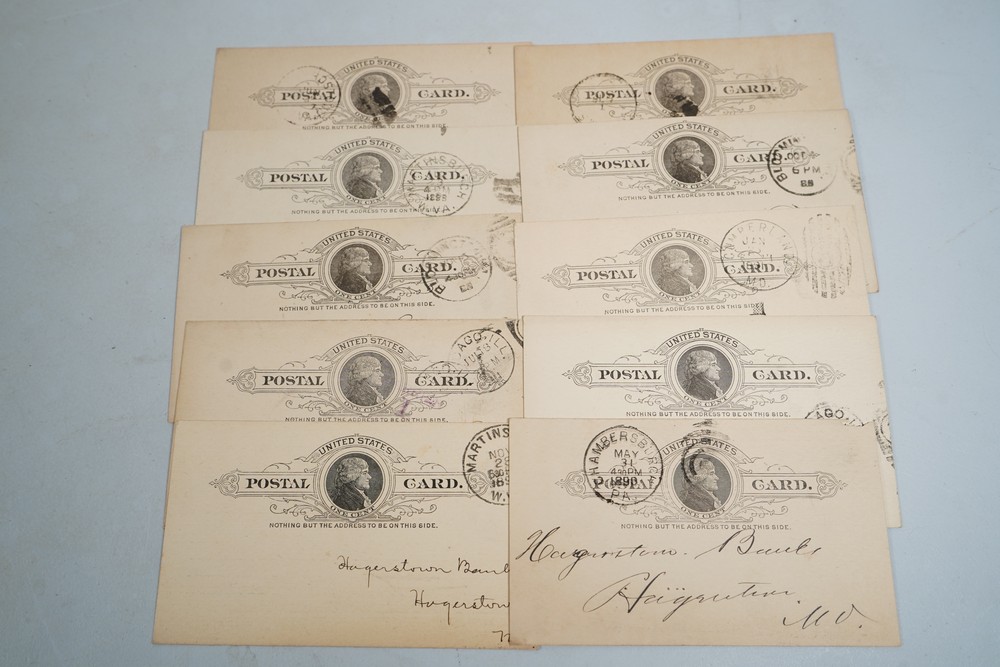 UNITED STATES
POSTAL CARD.
NOTHING BUT THE ADDRESS TO BE ON THIS SIDE.
UNITED STATES
POSTAL CARD.
UNITED STATES
POSTAL CARD.
ONE CENT
NOTHING BUT THE ADDRESS TO BE ON THIS SIDE.
VA.
UNITED STATES
POSTAL CARD.
ONE CENT
NOTHING BUT THE ADDRESS TO BE ON THIS SIDE.
OCT
6 PM
UNITED STATES
POSTAL CARD.
ONE CENT
NOTHING BUT THE ADDRESS TO BE ON THIS SIDE.
UNITED STATES
POSTAL CARD.
ONE CENT
NOTHING BUT THE ADDRESS TO BE ON THIS SIDE.
JAN
MD.
UNITED STATES
POSTAL CARD.
ONE CENT
NOTHING BUT THE ADDRESS TO BE ON THIS SIDE.
AGO, ILL.
UNITED STATES
POSTAL CARD.
ONE CENT
NOTHING BUT THE ADDRESS TO BE ON THIS SIDE.
UNITED STATES
POSTAL CARD.
ONE CENT
NOTHING BUT THE ADDRESS TO BE ON THIS SIDE.
MARTINS
NOV
W.V
Hagerstown Bank
Hagerstown
UNITED STATES
POSTAL CARD.
ONE CENT
NOTHING BUT THE ADDRESS TO BE ON THIS SIDE.
CHAMBERSBURG
MAY
31
4 30 PM
1890
PA.
Hagerstown Bank
Hagerstown
MD.